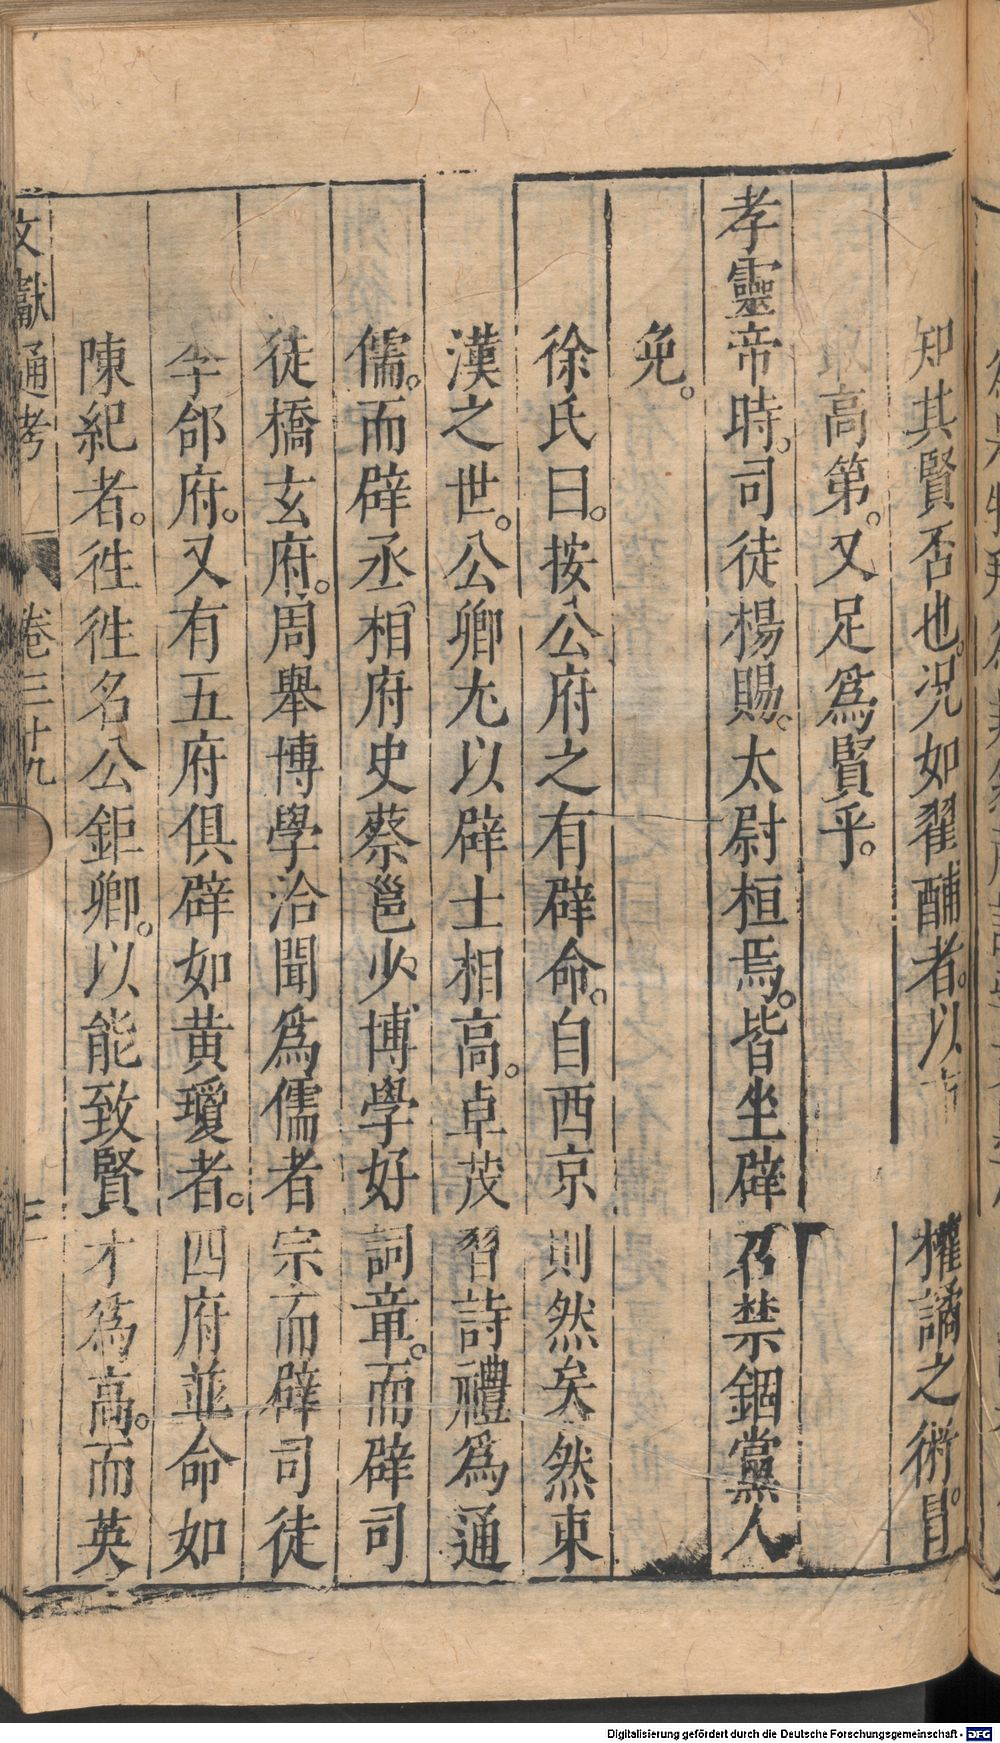 知其賢否也。況如翟酺者。以 權譎之術。冒
取高第。又足爲賢乎。
孝靈帝時。司徒楊賜。太尉桓焉。皆坐辟召禁錮黨人
免。
徐氏曰。按公府之有辟命。自西京則然矣。然東
漢之世。公卿尤以辟士相高。卓茂習詩禮爲通
儒。而辟丞相府史蔡邕少博學好詞章。而辟司
徒橋玄府。周舉博學洽聞爲儒者宗而辟司徒
李郃府。又有五府俱辟如黄瓊者。四府並命如
陳紀者。徃徃名公鉅卿。以能致賢才爲高。而英
文獻通考 卷三十九 三
Digitalisierung gefördert durch die Deutsche Forschungsgemeinschaft - DFG